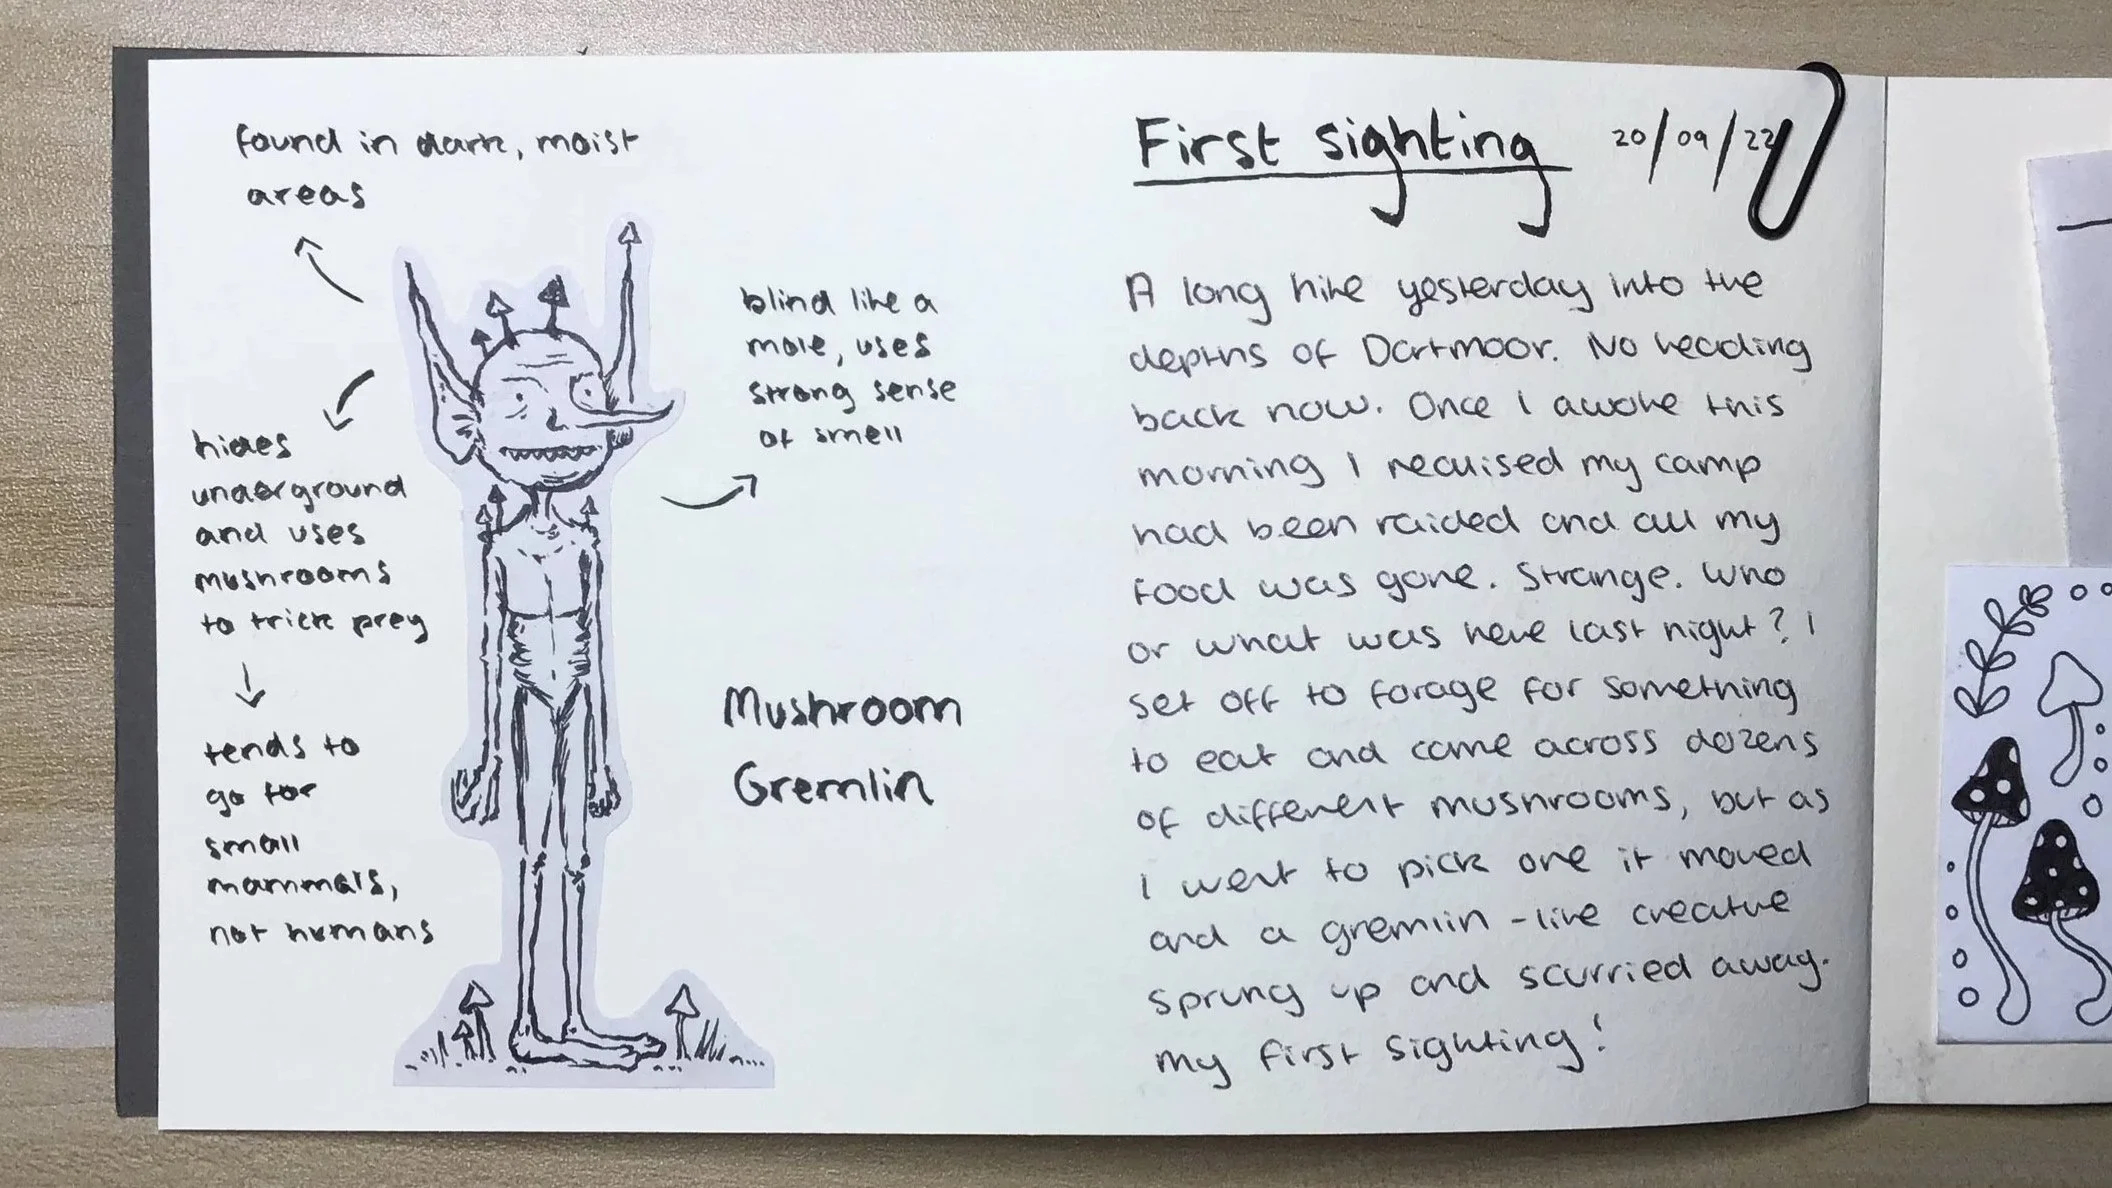 found in dark, moist
areas
blind like a
mole, uses
strong sense
of smell
hides
underground
and uses
mushrooms
to trick prey
tends to
go for
small
mammals,
not humans
Mushroom
Gremlin
First sighting 20/09/22
A long hike yesterday into the
depths of Dartmoor. No heading
back now. Once I awoke this
morning I realised my camp
had been raided and all my
food was gone. Strange. Who
or what was here last night? I
set off to forage for something
to eat and came across dozens
of different mushrooms, but as
I went to pick one it moved
and a gremlin-like creature
sprung up and scurried away.
My first sighting!